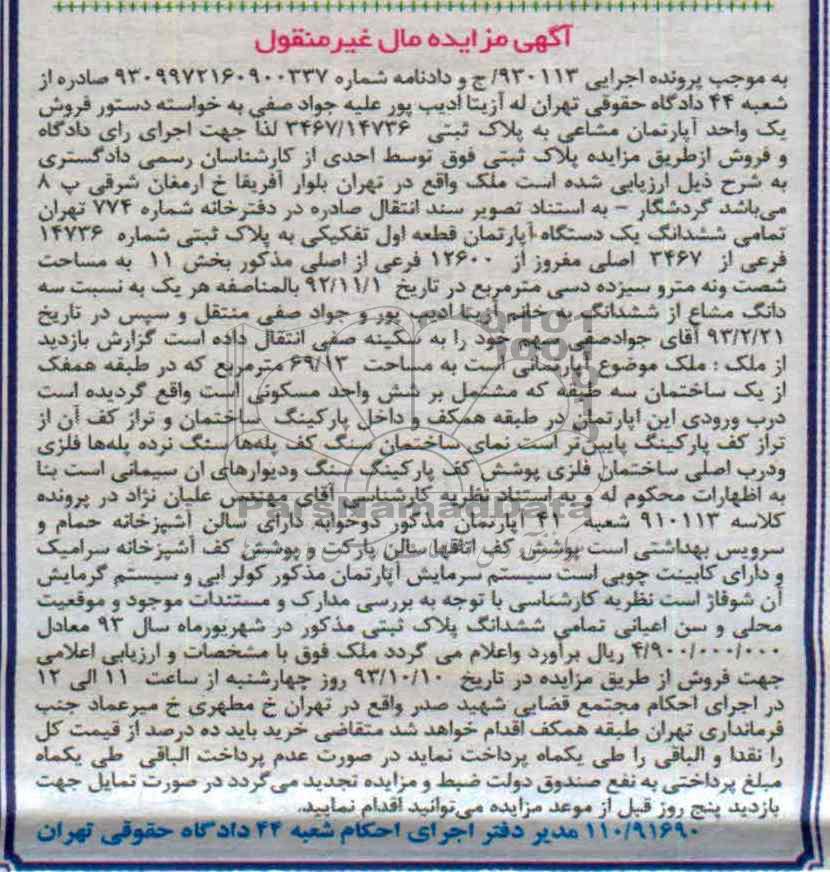 آگهی مزایده مال غیرمنقول
به موجب پرونده اجرایی ۹۳۰۱۱۳/ ج و دادنامه شماره ۹۳۰۹۹۷۲۱۶۰۹۰۰۳۳۷ صادره از
شعبه ۴۴ دادگاه حقوقی تهران له آزیتا ادیب پور علیه جواد صفی به خواسته دستور فروش
یک واحد آپارتمان مشاعی به پلاک ثبتی ۳۴۶۷/۱۴۷۳۶ لذا جهت اجرای رای دادگاه
و فروش ازطریق مزایده پلاک ثبتی فوق توسط احدی از کارشناسان رسمی دادگستری
به شرح ذیل ارزیابی شده است ملک واقع در تهران بلوار آفریقا خ ارمغان شرقی پ ۸
می‌باشد گردشگار – به استناد تصویر سند انتقال صادره در دفترخانه شماره ۷۷۴ تهران
تمامی ششدانگ یک دستگاه آپارتمان قطعه اول تفکیکی به پلاک ثبتی شماره ۱۴۷۳۶
فرعی از ۳۴۶۷ اصلی مفروز از ۱۲۶۰۰ فرعی از اصلی مذکور بخش ۱۱ به مساحت
شصت ونه مترو سیزده دسی مترمربع در تاریخ ۹۲/۱۱/۱ بالمناصفه هر یک به نسبت سه
دانگ مشاع از ششدانگ به خانم آزیتا ادیب پور و جواد صفی منتقل و سپس در تاریخ
۹۳/۲/۲۱ آقای جوادصفی سهم خود را به سکینه صفی انتقال داده است گزارش بازدید
از ملک : ملک موضوع آپارتمانی است به مساحت ۶۹/۱۳ مترمربع که در طبقه همفک
از یک ساختمان سه طبقه که مشتمل بر شش واحد مسکونی است واقع گردیده است
درب ورودی این اپارتمان در طبقه همکف و داخل پارکینگ ساختمان و تراز کف آن از
تراز کف پارکینگ پایین‌تر است نمای ساختمان سنگ کف پله‌ها سنگ نرده پله‌ها فلزی
ودرب اصلی ساختمان فلزی پوشش کف پارکینگ سنگ ودیوارهای ان سیمانی است بنا
به اظهارات محکوم له و به استناد نظریه کارشناسی آقای مهندس علیان نژاد در پرونده
کلاسه ۹۱۰۱۱۳ شعبه ۴۱ آپارتمان مذکور دوخوابه دارای سالن آشپزخانه حمام و
سرویس بهداشتی است پوشش کف اتاقها سالن پارکت و پوشش کف آشپزخانه سرامیک
و دارای کابینت چوبی است سیستم سرمایش آپارتمان مذکور کولر ابی و سیستم گرمایش
آن شوفاژ است نظریه کارشناسی با توجه به بررسی مدارک و مستندات موجود و موقعیت
محلی و سن اعیانی تمامی ششدانگ پلاک ثبتی مذکور در شهریورماه سال ۹۳ معادل
۴/۹۰۰/۰۰۰/۰۰۰ ریال برآورد واعلام می گردد ملک فوق با مشخصات و ارزیابی اعلامی
جهت فروش از طریق مزایده در تاریخ ۹۳/۱۰/۱۰ روز چهارشنبه از ساعت ۱۱ الی ۱۲
در اجرای احکام مجتمع قضایی شهید صدر واقع در تهران خ مطهری خ میرعماد جنب
فرمانداری تهران طبقه همکف اقدام خواهد شد متقاضی خرید باید ده درصد از قیمت کل
را نقدا و الباقی را طی یکماه پرداخت نماید در صورت عدم پرداخت الباقی طی یکماه
مبلغ پرداختی به نفع صندوق دولت ضبط و مزایده تجدید می‌گردد در صورت تمایل جهت
بازدید پنج روز قبل از موعد مزایده می‌توانید اقدام نمایید.
۱۱۰/۹۱۶۹۰ مدیر دفتر اجرای احکام شعبه ۴۴ دادگاه حقوقی تهران
ParsNamadData